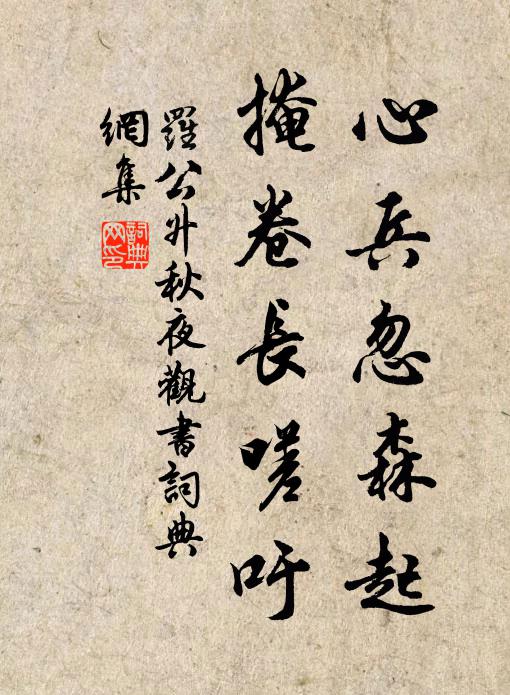 心兵忽森起
掩卷長嗟吁
羅公升秋夜觀書詞典
網集
詞典
网印